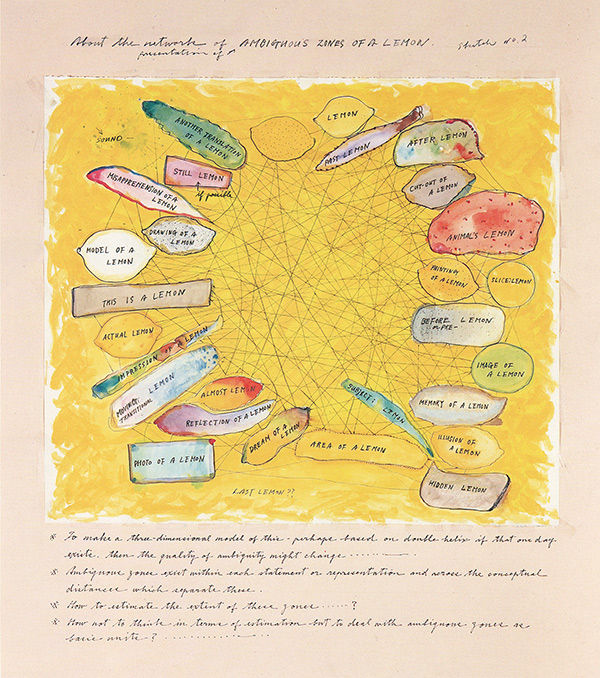 About the network of AMBIGUOUS ZONES OF A LEMON. Sketch No. 2
presentation of ^
LEMON
ANOTHER TRANSLATION
OF A LEMON
SOUND —
PAST LEMON
AFTER LEMON
STILL LEMON
if possible
MISAPPREHENSION OF A
LEMON
CUT-OUT OF
A LEMON
DRAWING OF A
LEMON
ANIMAL'S LEMON
MODEL OF A
LEMON
PAINTING
OF A LEMON
SLICE:LEMON
THIS IS A LEMON
BEFORE LEMON
or PRE-
ACTUAL LEMON
IMPRESSION OF A LEMON
IMAGE OF
A LEMON
LEMON
TRANSITIONAL
ALMOST LEMON
SUBJECT: LEMON
MEMORY OF A LEMON
REFLECTION OF A LEMON
DREAM OF A
LEMON
AREA OF A LEMON
ILLUSION OF
A LEMON
PHOTO OF A LEMON
HIDDEN LEMON
LAST LEMON ??
※ To make a three-dimensional model of this - perhaps based on double helix if that one day
exists. then the quality of ambiguity might change ............
※ Ambiguous zones exist within each statement or representation and across the conceptual
distances which separate these.
※ How to estimate the extent of these zones ......?
※ How not to think in terms of estimation but to deal with ambiguous zones as
basic-units? ...............